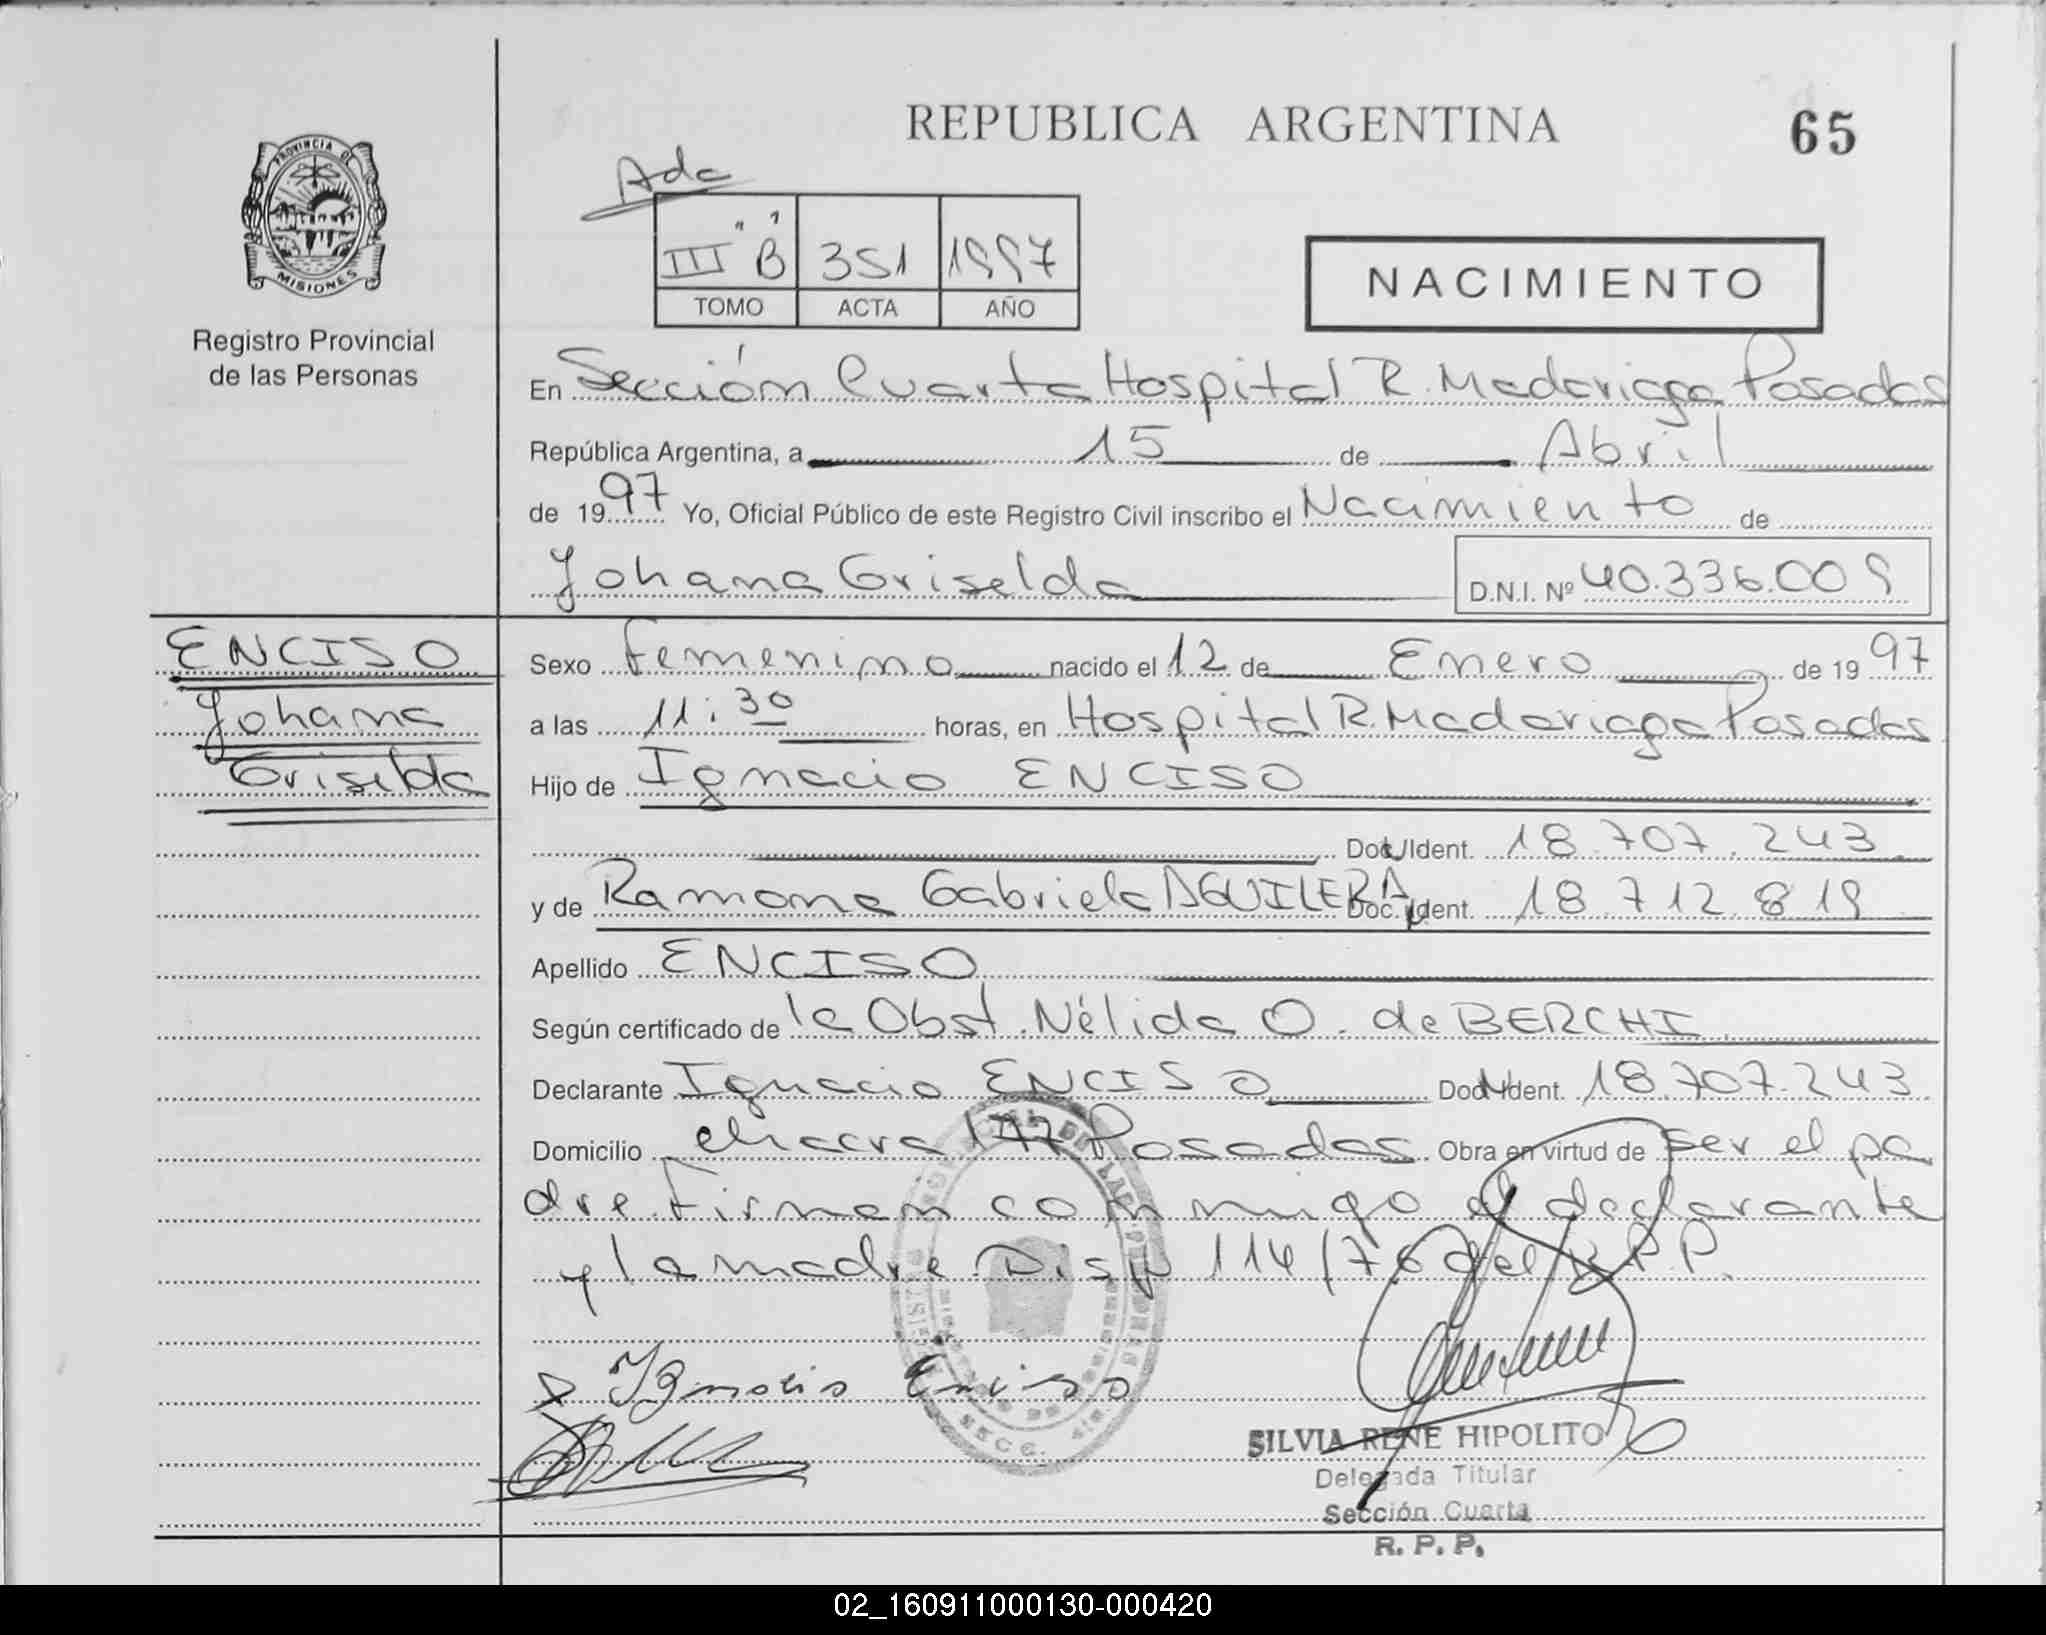 REPUBLICA ARGENTINA
65
PROVINCIA DE
MISIONES
Registro Provincial
de las Personas
Ada
III "B" 351 1997
TOMO ACTA AÑO
NACIMIENTO
En Sección Cuarta Hospital R. Madariaga Posadas
República Argentina, a 15 de Abril
de 1997 Yo, Oficial Público de este Registro Civil inscribo el Nacimiento de
Johana Griselda D.N.I. Nº 40.336.009
ENCISO
Johana
Griselda
Sexo Femenino nacido el 12 de Enero de 1997
a las 11:30 horas, en Hospital R. Madariaga Posadas
Hijo de Ignacio ENCISO
Doc. Ident. 18.707.243
y de Ramona Gabriela AGUILERA Doc. Ident. 18 712 819
Apellido ENCISO
Según certificado de la Obst. Nélida O. de BERCHI
Declarante Ignacio ENCISO Doc. Ident. 18.707.243
Domicilio chacra 177 Posadas Obra en virtud de ser el pa
dre. Firman conmigo el declarante
y la madre. Disp 114/76 del R.P.P.
Ignacio Enciso
SILVIA RENE HIPOLITO
Delegada Titular
Sección Cuarta
R. P. P.
02_160911000130-000420